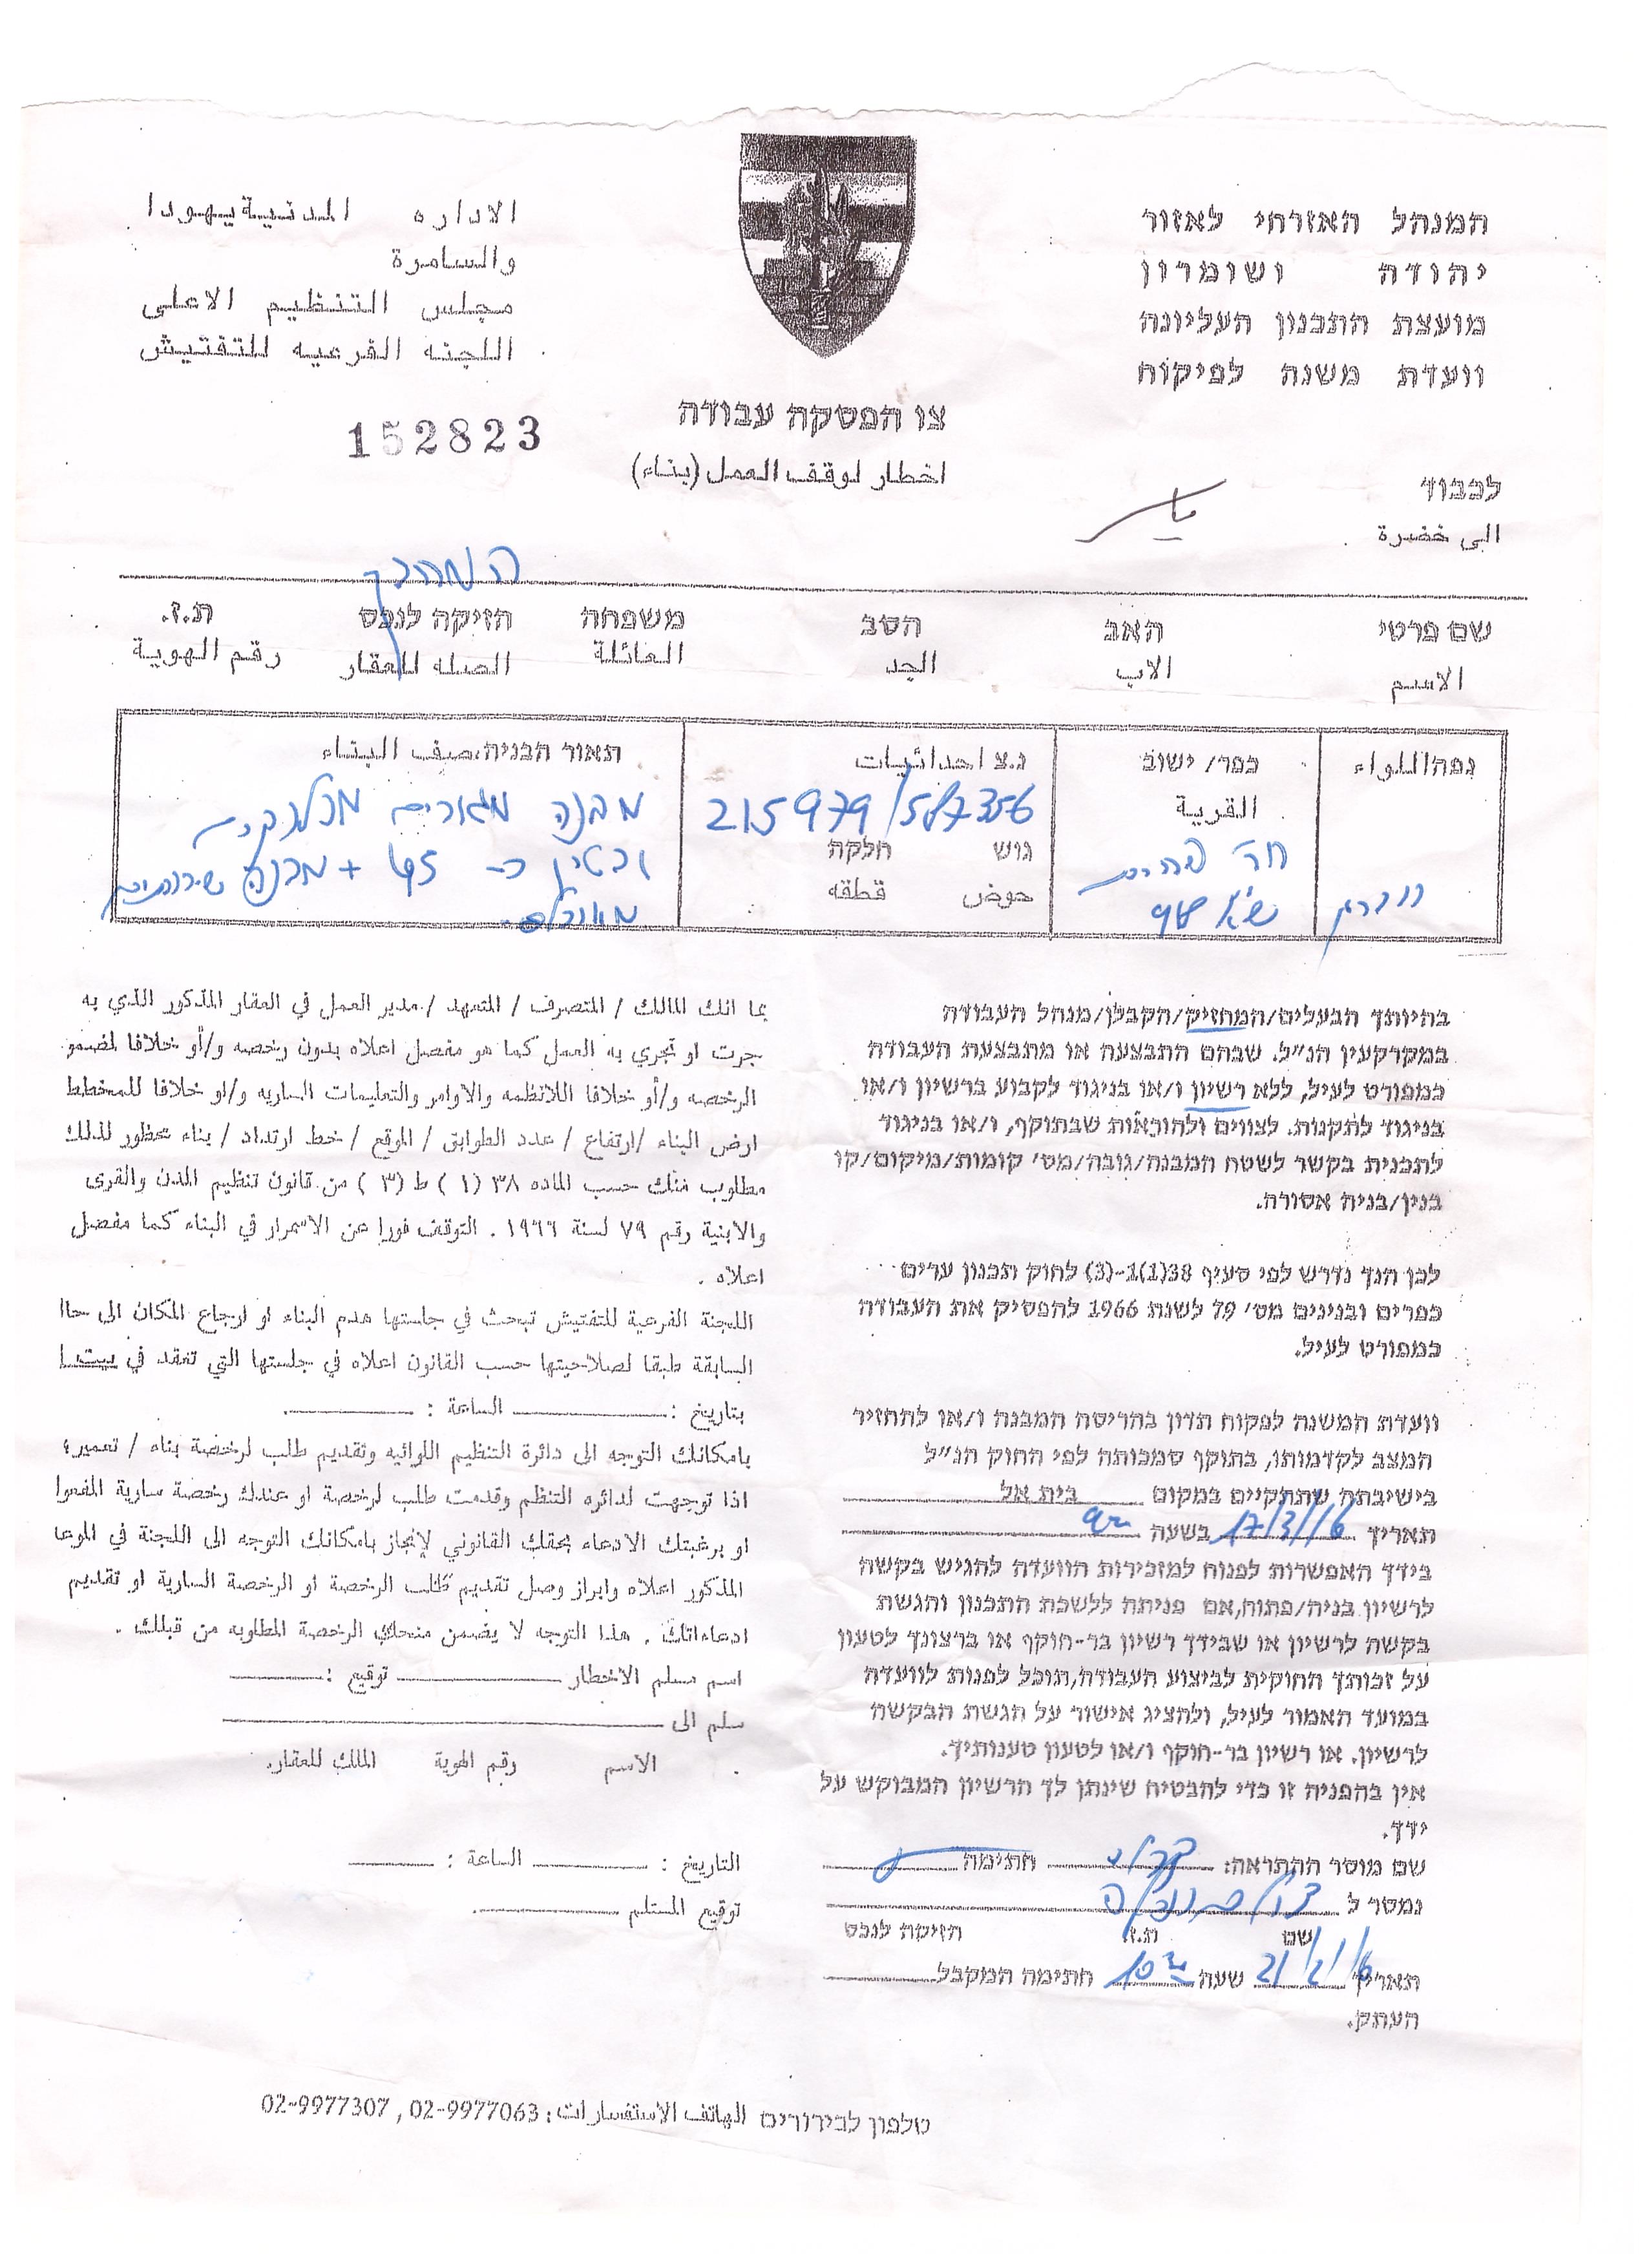 המנהל האזרחי לאזור
יהודה ושומרון
מועצת התכנון העליונה
וועדת משנה לפיקוח
الاداره المدنية يهودا
والسامرة
مجلس التنظيم الاعلى
اللجنه الفرعيه للتفتيش
צו הפסקה עבודה
152823
اخطار لوقف العمل (بناء)
לכבוד
الى خضرة
שם פרטי האב הסב משפחה חזיקה לנכס ת.ז.
الاسم الاب الجد العائلة الصله للعقار رقم الهوية
נפה/اللواء כפר/ ישוב נ.צ احداثيات תאור הבניה/صيف البناء
القرية 215979/587356 מבנה מגורים
גוש חלקה
حوض قطقه
בהיותך הבעלים/המחזיק/הקבלן/מנהל העבודה
במקרקעין הנ״ל. שבהם התבצעה או מתבצעת העבודה
כמפורט לעיל, ללא רשיון ו/או בניגוד לקבוע ברשיון ו/או
בניגוד לתקנות. לצווים ולהוראות שבתוקף, ו/או בניגוד
לתכנית בקשר לשטח המבנה/גובה/מס׳ קומות/מיקום/קו
בנין/בניה אסורה.
לכן הנך נדרש לפי סעיף 38(1)1-(3) לחוק תכנון ערים
כפרים ובנינים מס׳ 79 לשנת 1966 להפסיק את העבודה
כמפורט לעיל.
וועדת המשנה לפקוח תדון בהריסת המבנה ו/או להחזיר
המצב לקדמותו, בתוקף סמכותה לפי החוק הנ״ל
בישיבתה שתתקיים במקום בית אל
תאריך 17/3/16 בשעה
בידך האפשרות לפנות למזכירות הוועדה להגיש בקשה
לרשיון בניה/פתוח,אם פניתה ללשכת התכנון והגשת
בקשה לרשיון או שבידך רשיון בר-תוקף או ברצונך לטעון
על זכותך החוקית לביצוע העבודה,תוכל לפנות לוועדה
במועד האמור לעיל, ולהציג אישור על הגשת הבקשה
לרשיון. או רשיון בר-תוקף ו/או לטעון טענותיך.
אין בהפניה זו כדי להבטיח שינתן לך הרשיון המבוקש על
ידך.
שם מוסר ההתראה: חתימה
נמסר ל
שם ת.ז. חזיקה לנכס
תאריך 21/2/16 שעה 10 חתימה המקבל
העתק.
بما انك المالك / المتصرف / المتعهد / مدير العمل في العقار المذكور الذي به
جرت او تجري به العمل كما هو مفصل اعلاه بدون رخصه و/أو خلافا لمضمو
الرخصه و/أو خلافا اللانظمه والاوامر والتعليمات الساريه و/او خلافا للمخطط
ارض البناء /ارتفاع / عدد الطوابق / الموقع / خط ارتداد / بناء محظور لذلك
مطلوب منك حسب الماده ٣٨ (١) ط (٣) من قانون تنظيم المدن والقرى
والابنية رقم ٧٩ لسنة ١٩٦٦ . التوقف فورا عن الاسمرار في البناء كما مفصل
اعلاه .
اللجنة الفرعية للتفتيش تبحث في جلستها هدم البناء او ارجاع المكان الى حاا
السابقة طبقا لصلاحيتها حسب القانون اعلاه في جلستها التي تعقد في بيت ا
بتاريخ : الساعة :
بامكانك التوجه الى دائرة التنظيم اللوائيه وتقديم طلب لرخصة بناء / تعمير؛
اذا توجهت لدائره التنظم وقدمت طلب لرخصة او عندك رخصة سارية المفعوا
او برغبتك الادعاء بحقك القانوني لإنجاز بامكانك التوجه الى اللجنة في الموعا
المذكور اعلاه وابراز وصل تقديم طلب الرخصة او الرخصة السارية او تقديم
ادعاءاتك . هذا التوجه لا يضمن منحك الرخصة المطلوبه من قبلك .
اسم مسلم الاخطار توقيع :
سلم الى
الاسم رقم الهوية المالك للعقار.
التاريخ : الساعة :
توقيع المستلم
טלפון לבירורים الهاتف الاستفسارات: 02-9977063 , 02-9977307